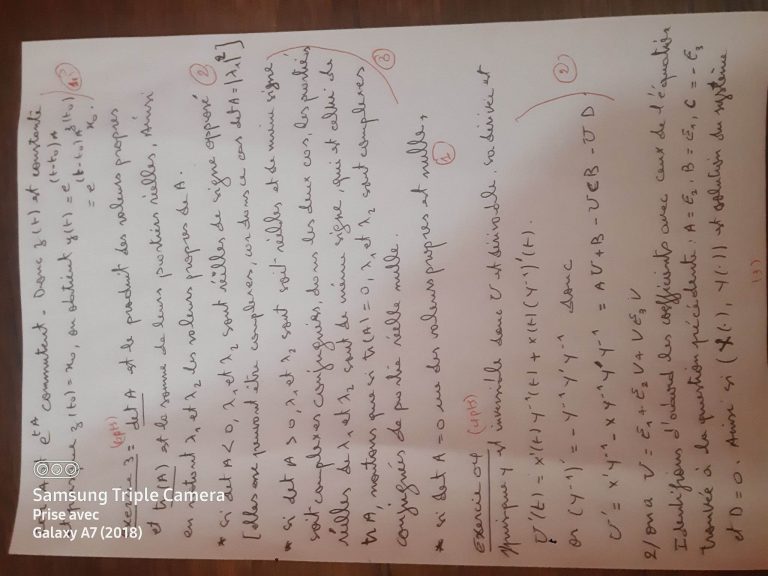 et A et e^{tA} commutent - Donc z(t) est constante
et puisque z(t_0) = x_0, on obtient y(t) = e^{(t-t_0)A} z(t_0)
= e^{(t-t_0)A} x_0.
exercice 3 = (6pts) det A est le produit des valeurs propres
et tr(A) est la somme de leurs parties réelles, Ainsi
en notant λ_1 et λ_2 les valeurs propres de A.
* si det A < 0, λ_1 et λ_2 sont réelles de signe opposé (2)
[elles ne peuvent être complexes, car dans ce cas det A = |λ_1|^2]
* si det A > 0, λ_1 et λ_2 sont soit réelles et de même signe
soit complexes conjuguées, dans les deux cas, les parties
réelles de λ_1 et λ_2 sont de même signe, qui est celui de (3)
tr A, notons que si tr(A) = 0, λ_1 et λ_2 sont complexes
conjuguées de partie réelle nulle.
* si det A = 0 une des valeurs propres est nulle, (1)
exercice 04 (4pts)
Puisque Y est inversible donc U est dérivable, sa dérivée est
U'(t) = X'(t) Y^{-1}(t) + X(t) (Y^{-1})'(t).
or (Y^{-1})' = - Y^{-1} Y' Y^{-1} donc (2)
U' = X' Y^{-1} - X Y^{-1} Y' Y^{-1} = A U + B - U C B - U D.
2/ on a U = E_1 + E_2 U + U E_3 U
Identifions d'abord les coefficients avec ceux de l'équation
trouvée à la question précédente: A = E_2, B = E_1, C = - E_3
et D = 0. Ainsi si (X(.), Y(.)) est solution du système
Samsung Triple Camera
Prise avec
Galaxy A7 (2018)